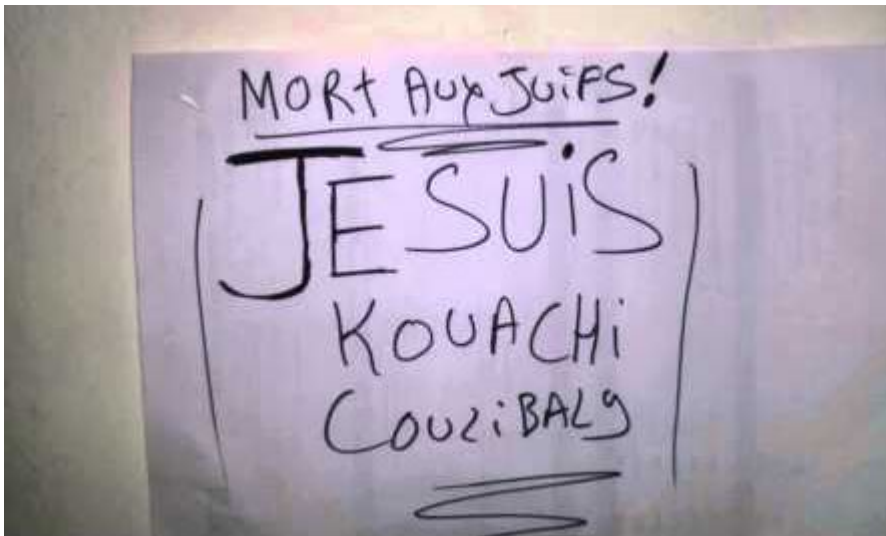 MORt AUx JUiFS!
JE SUiS
KOUACHi
COULiBALy